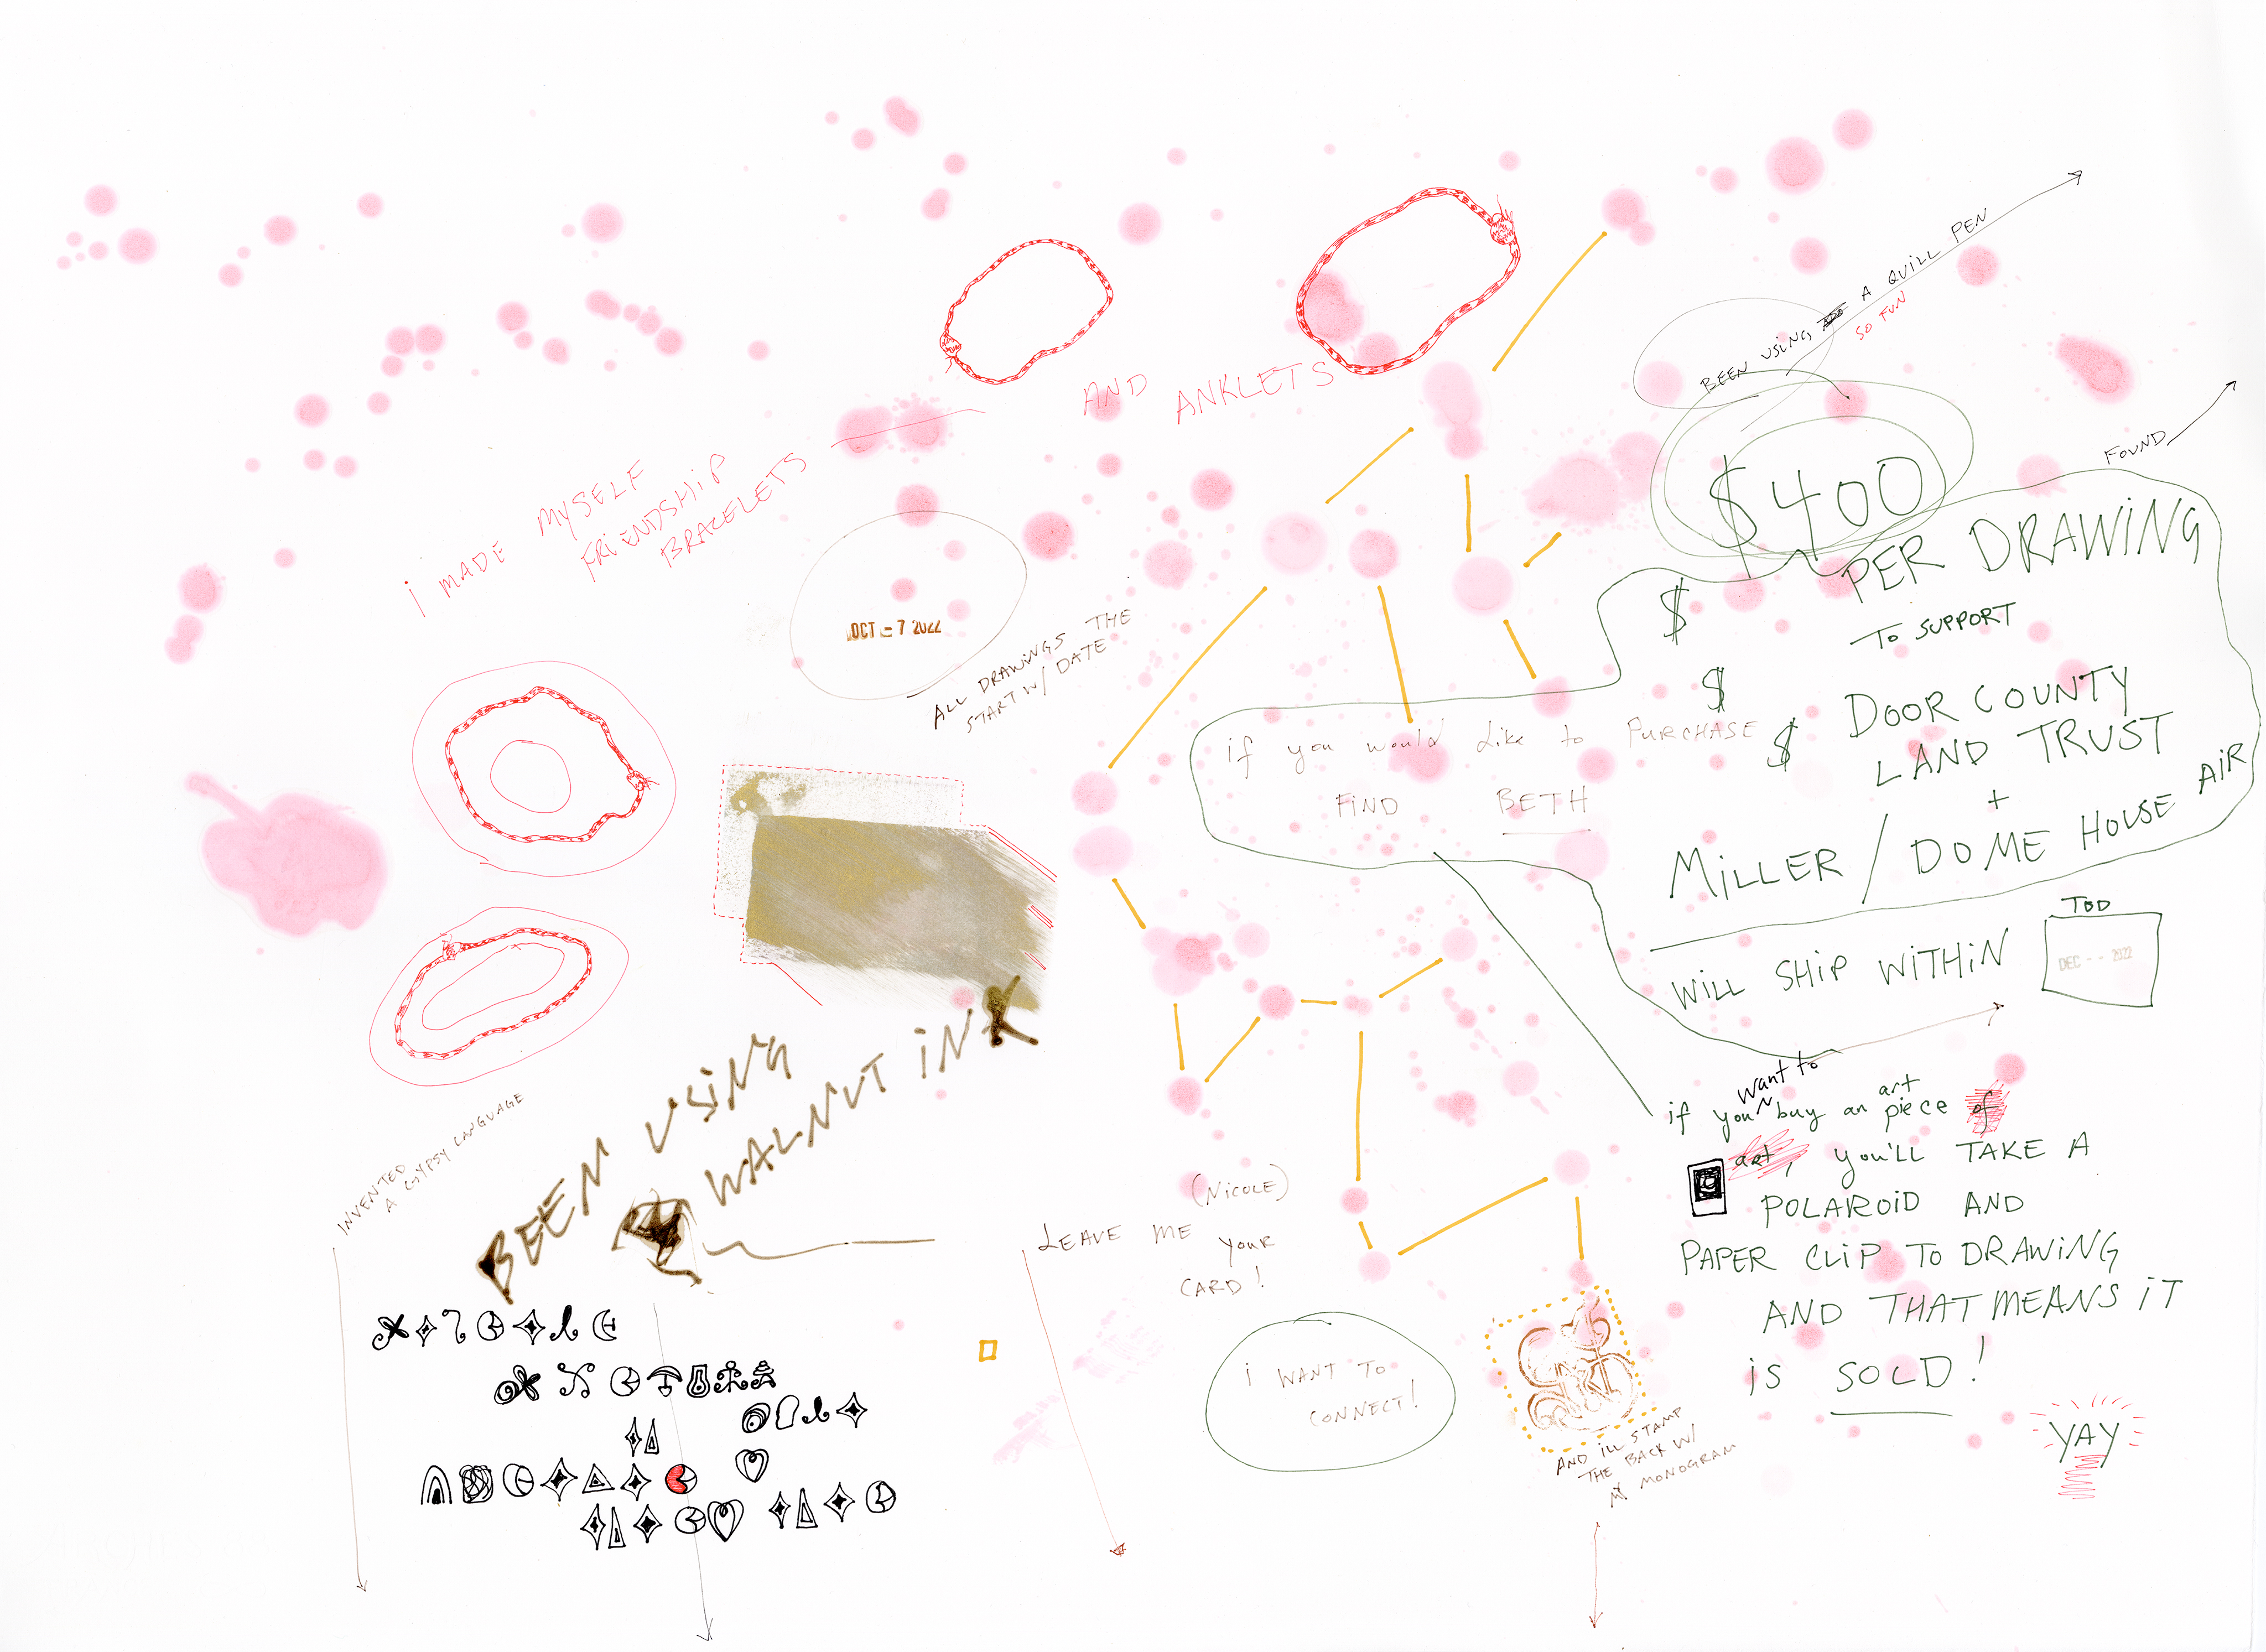 BEEN USING A QUILL PEN
SO FUN
FOUND
AND ANKLETS
I MADE MYSELF
FRIENDSHIP
BRACELETS
$400
PER DRAWING
TO SUPPORT
$
$
$
DOOR COUNTY
LAND TRUST
+
MILLER / DOME HOUSE AIR
OCT - 7 2022
ALL DRAWINGS THE
START W/ DATE
if you would like to PURCHASE
FIND BETH
WILL SHIP WITHIN
TOD
DEC -- 2022
BEEN USING
WALNUT INK
INVENTED
A GYPSY LANGUAGE
want to
if you buy an art piece of
art, you'll TAKE A
POLAROID AND
PAPER CLIP TO DRAWING
AND THAT MEANS IT
is SOLD!
YAY
(NICOLE)
LEAVE ME your
CARD!
i WANT TO
CONNECT!
AND ILL STAMP
THE BACK W/
MY MONOGRAM